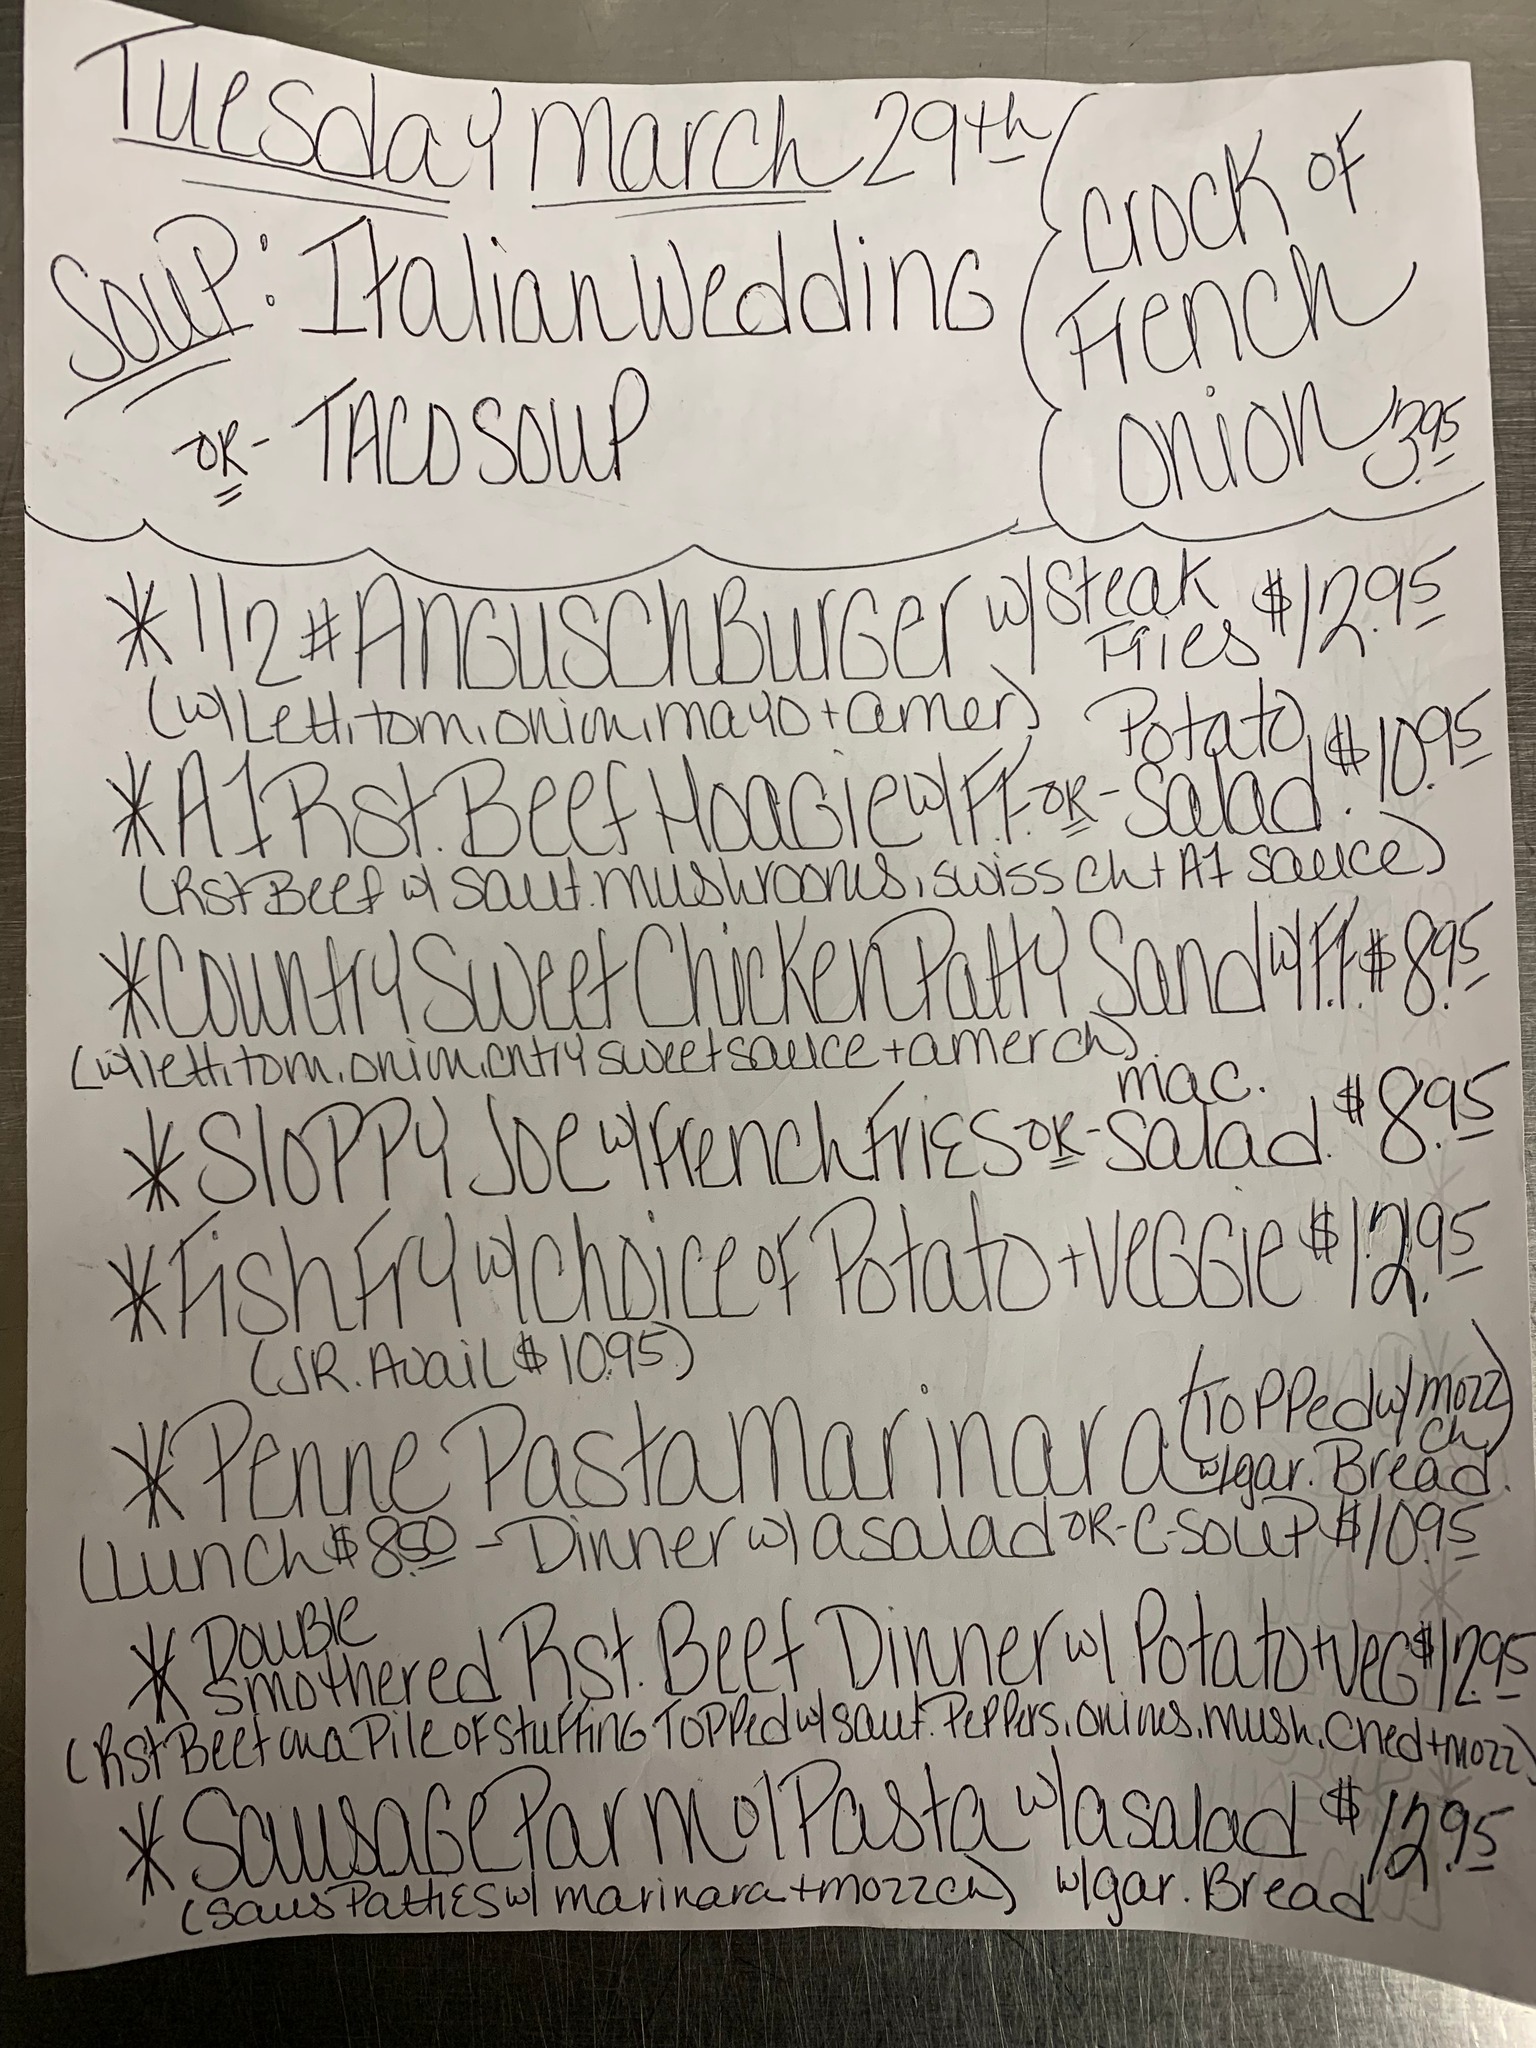 Tuesday March 29th
Soup: Italian Wedding
-OR- TACO SOUP
Crock OF
French
Onion 3.95
* 1/2 # Angus Ch Burger w/ Steak Fries $12.95
(w/ Lett, tom, onion, mayo + amer)
* A1 Rst. Beef Hoagie w/ F.F. -OR- Potato Salad. $10.95
(Rst Beef w/ saut. mushrooms, swiss ch + A1 sauce)
* Country Sweet Chicken Patty Sand w/ F.F. $8.95
(w/ lett, tom, onion, cntry sweet sauce + amer ch)
* Sloppy Joe w/ French Fries -OR- mac. Salad. $8.95
* Fish Fry w/ choice of Potato + Veggie $12.95
(JR. Avail $10.95)
* Penne Pasta Marinara (Topped w/ mozz ch) w/ gar. Bread.
(Lunch $8.50 - Dinner w/ a salad OR - C-Soup $10.95
* Double Smothered Rst. Beef Dinner w/ Potato + Veg $12.95
(Rst Beef on a Pile of stuffing Topped w/ saut. Peppers, onions, mush, ched + mozz)
* Sausage Parm o/ Pasta w/ a salad $12.95
(saus Patties w/ marinara + mozz ch) w/ gar. Bread